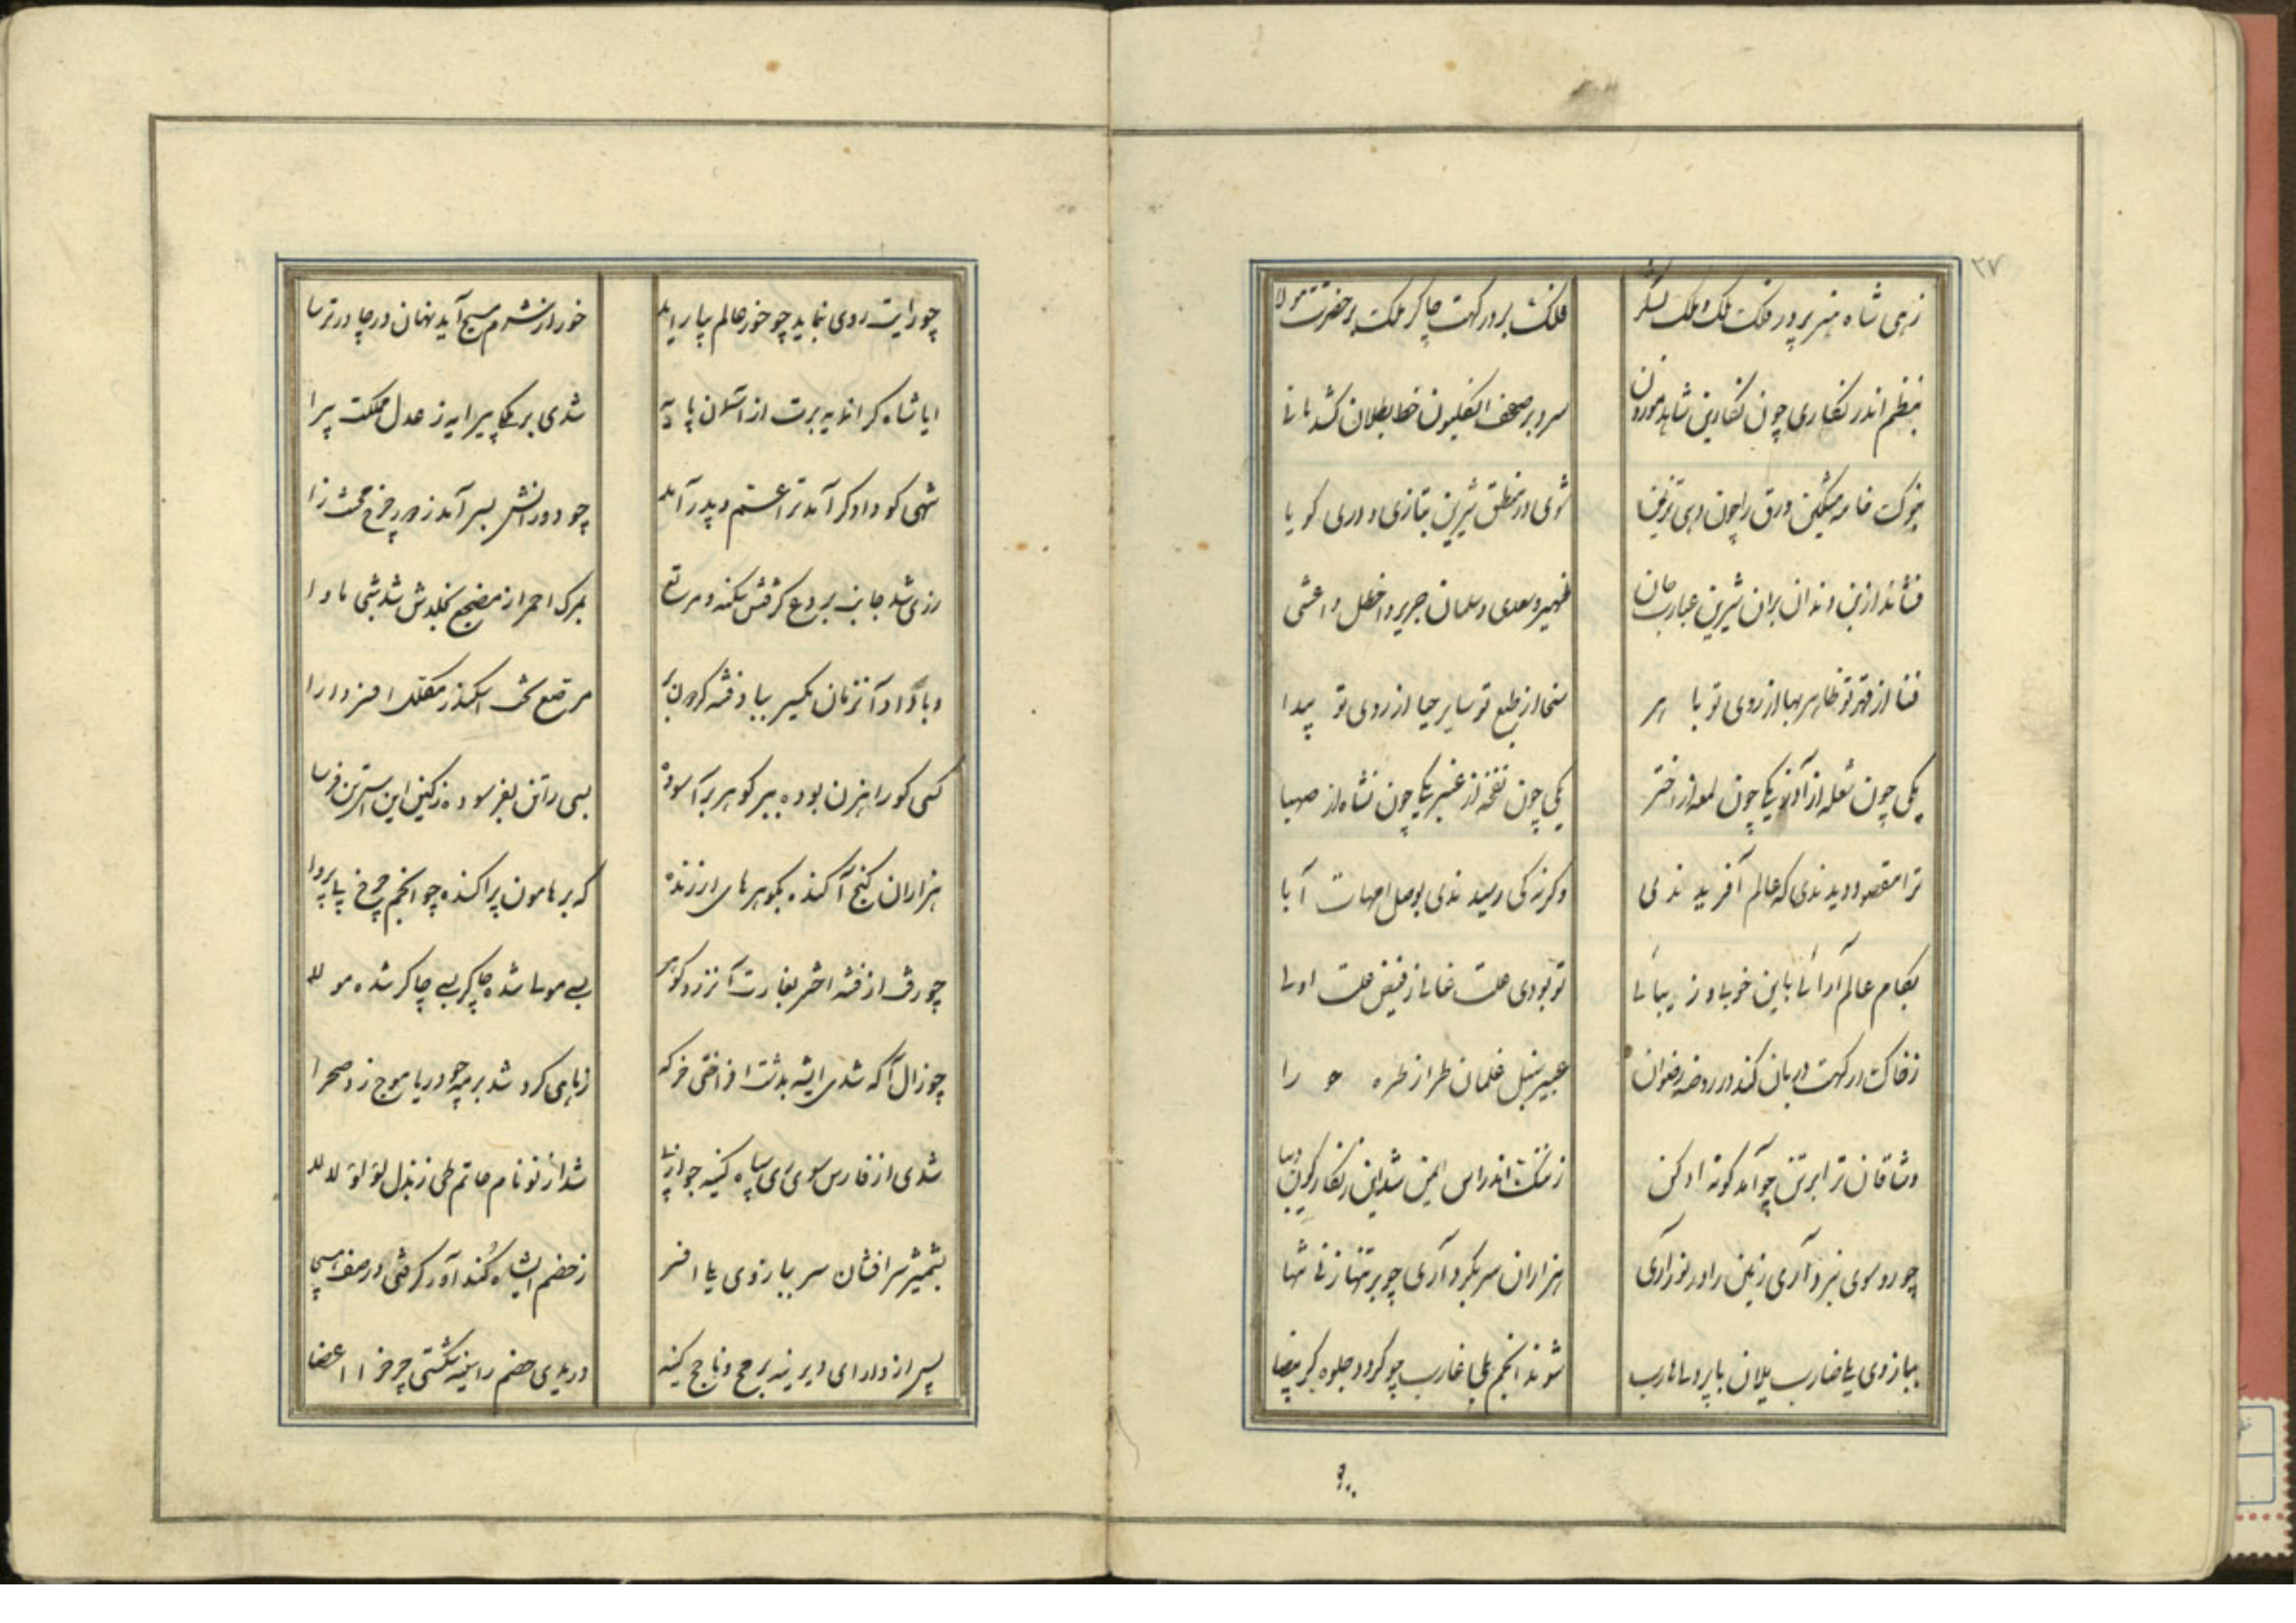 ۳۷
زهی شاه هنر پرور فلک ملک و ملک لشکر
فلکت بر درگهت چاکر ملکت بر حضرتت مولا
بنظم اندر نگاری چون نگارین شاهد موزون
سزد بر صحف انگلیون خط بطلان کشد مانی
بنوک خامه مشکین ورق را چون دهی تزیین
شوی در منطق شیرین بتازی و دری گویا
فشاند از بن دندان بران شیرین عبارت جان
ظهیر و سعدی و سلمان جریر و اخطل و اعشی
فنا از قهر تو ظاهر بها از روی تو باهر
سخا از طبع تو سایر حیا از روی تو پیدا
یکی چون شعله از آذر یکی چون لمعه از اختر
یکی چون نفخه از عنبر یکی چون نشاه از صهبا
ترا مقصود دیدندی که عالم آفریدندی
وگرنه کی رسیدندی بوصل امهات آبا
بکام عالم آرائی باین خوبی و زیبائی
تو بودی علت غائی ز فیض علت اولی
ز خاک درگهت دربان کند در روضه رضوان
عبیر سنبل غلمان طراز طره حورا
وشاقان ترا بر تن چو آمد گونه ادکن
ز مشکت اندر اس المین شد این زنگارگون دیبا
چو رو سوی نبرد آری زمین را در نورد آری
هزاران سر بگرد آری چو بر تنها زنی تنها
ببازوی یلی ضارب یلان با پردلی هارب
شوند انجم بلی غارب چو گردد جلوه گر بیضا
چو رایت روی نماید چو خور عالم بیاراید
خور از شرم مسیح آید نهان در چادر ترسا
ایا شاه گرانمایه برت از آسمان پایه
شدی بر ملک پیرایه ز عدل مملکت پیرا
شهی کو دادگر آمد ترا عم و پدر آمد
چو دورانش بسر آمد ز دور چرخ محنت زا
رزی شد جانب بردع گرفتش مکمن و مرتع
بمرگ احمر از مضجع بخلدش شد شبی ماوا
مرقع اسکندر مقلل افسر دارا
کسی کو راهزن بوده ببر گوهر برآسوده
بسی را تن بفرسوده ز کین این استر تن فرسا
هزاران گنج آکنده بگوهرهای ارزنده
که بر هامون پراکنده چو انجم چرخ پابرجا
چو رفت از فتنه اختر بغارت آن زر و گوهر
بسی مولی شده چاکر بسی چاکر شده مولا
چو زال آگه شدی ایشه بدشت افراختی خرگه
ز ماهی گرد شد بر مه چو دریا موج زد صحرا
شدی از فارس سوی ری سپاه کینه جو از پی
شد از تو نام حاتم طی ز بذل لؤلؤ لالا
بشمشیر سرافشان سر ببازوی یلی افسر
ز خضم ایشاه کندآور گرفتی در صف هیجا
پس از دارای دیرینه برمح و ناچخ کینه
دریدی خضم را سینه شکستی چرخ را اعضا